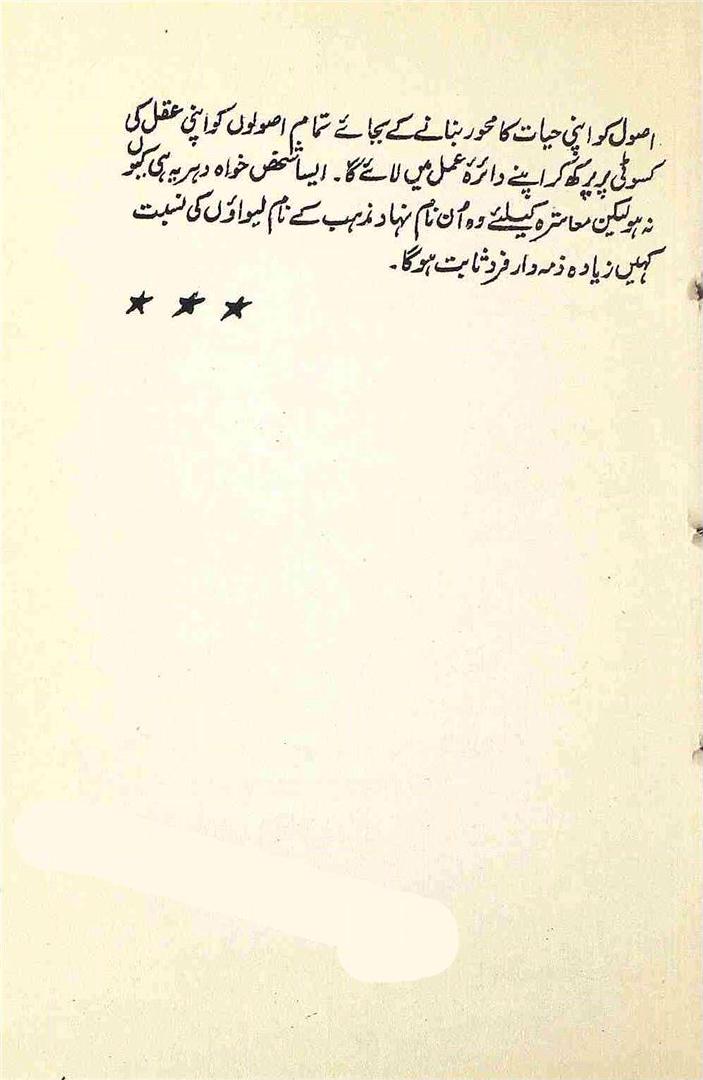 اصول کو اپنی حیات کا محور بنانے کے بجائے تمام اصولوں کو اپنی عقل کی
کسوٹی پر پرکھ کر اپنے دائرۂ عمل میں لائے گا۔ ایسا شخص خواہ دہریہ ہی کیوں
نہ ہو لیکن معاشرہ کیلئے وہ اُن نام نہاد مذہب کے نام لیواؤں کی نسبت
کہیں زیادہ ذمہ دار فرد ثابت ہوگا۔
★ ★ ★